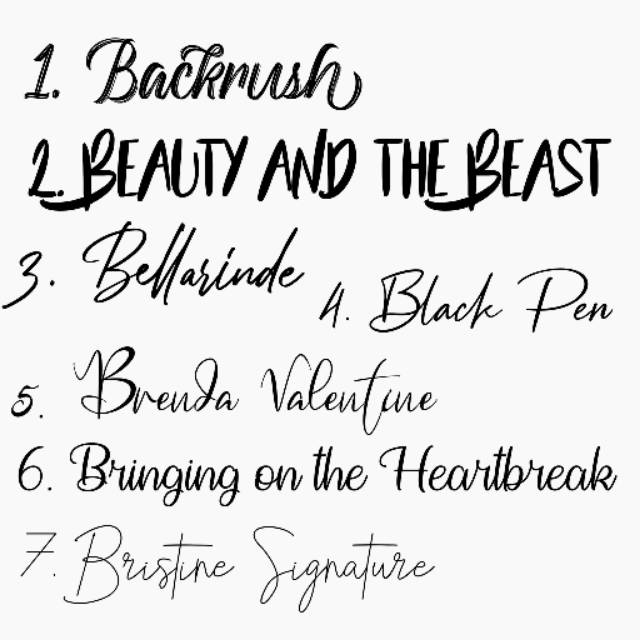 1. Backrush
2. BEAUTY AND THE BEAST
3. Bellarinde
4. Black Pen
5. Brenda Valentine
6. Bringing on the Heartbreak
7. Bristine Signature